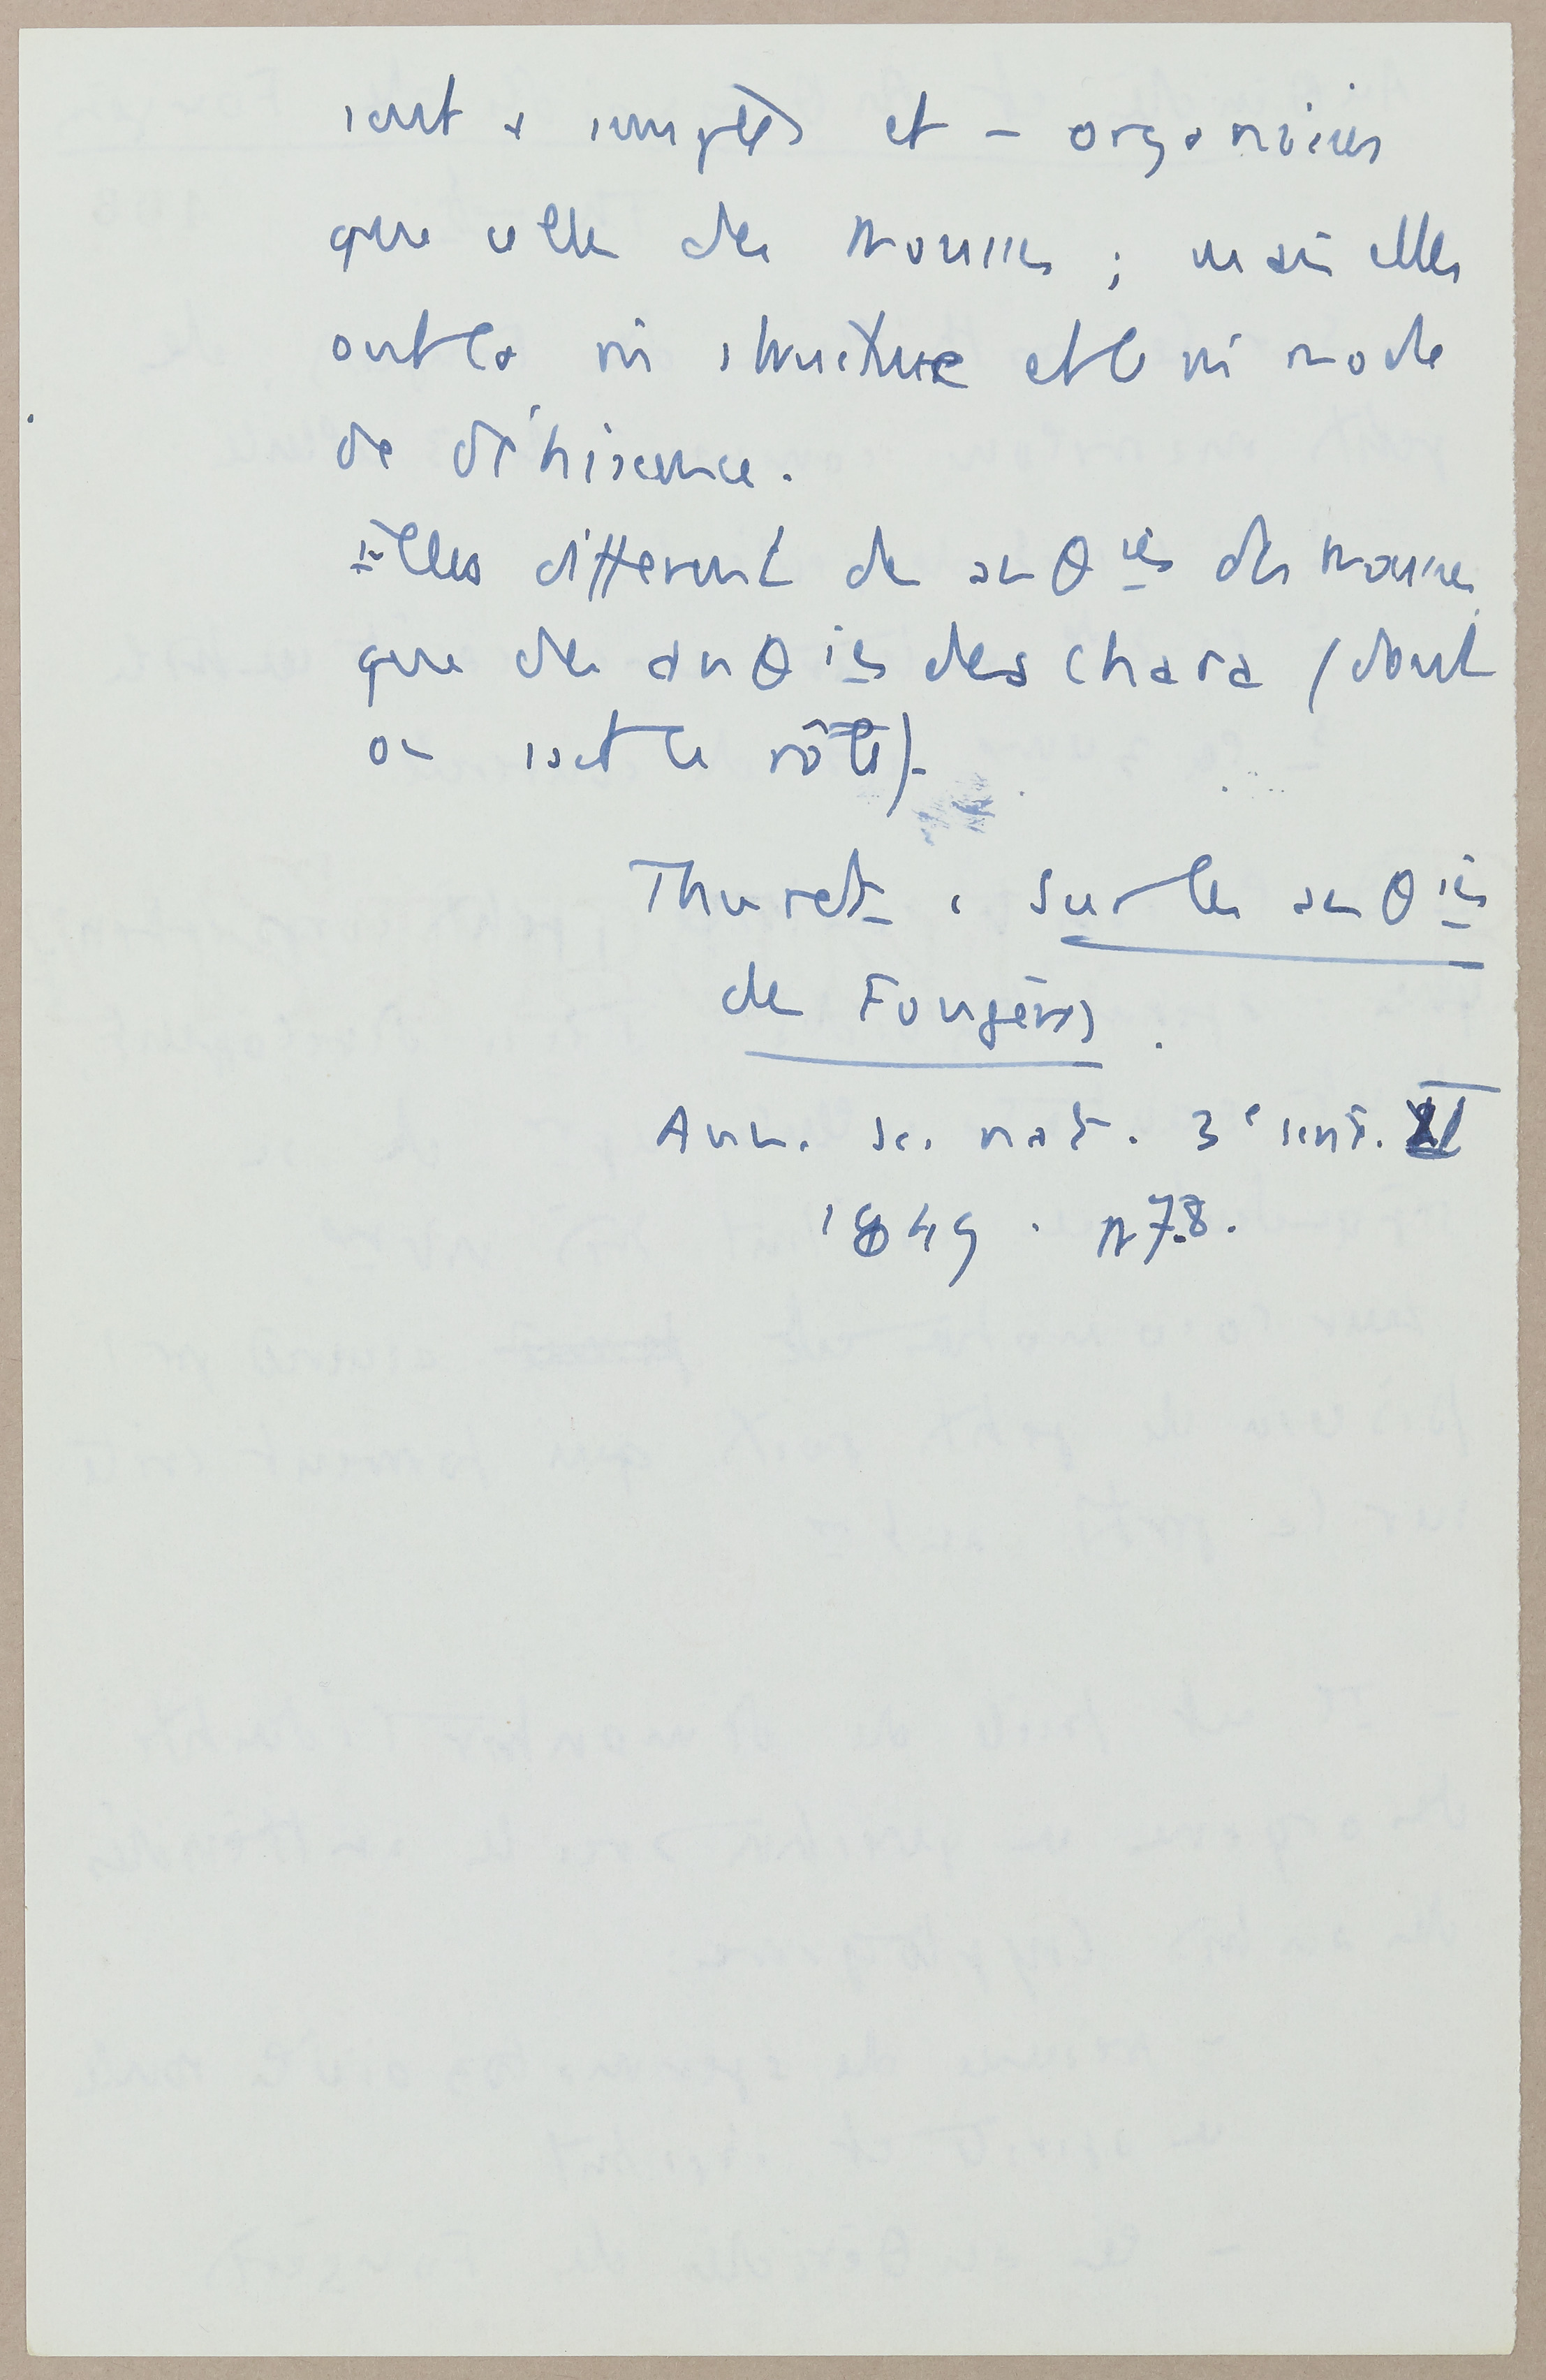 sont + simples et - organisées
que celles des Mousses ; mais elles
ont la m̂ structure et le m̂ mode
de déhiscence.
Elles diffèrent des anθies des Mousses
que des anθies des Chara (dont
on sait le rôle).
Thuret : Sur les anθies
des Fougères.
Ann. sc. nat. 3e série. XI
1849. p 7.8.